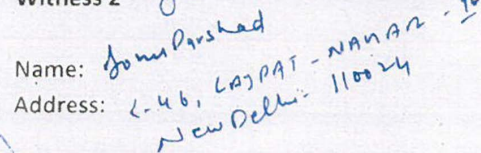 Witness 2
Name: Somu Parshad
Address: L-46, LAJPAT-NAGAR -
New Delhi- 110024